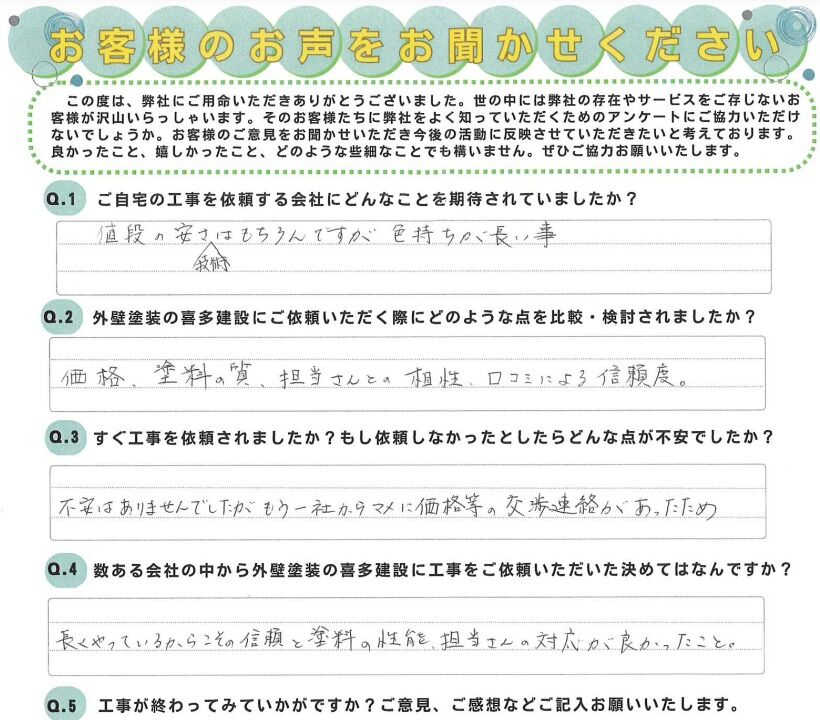 お客様のお声をお聞かせください
この度は、弊社にご用命いただきありがとうございました。世の中には弊社の存在やサービスをご存じないお
客様が沢山いらっしゃいます。そのお客様たちに弊社をよく知っていただくためのアンケートにご協力いただけ
ないでしょうか。お客様のご意見をお聞かせいただき今後の活動に反映させていただきたいと考えております。
良かったこと、嬉しかったこと、どのような些細なことでも構いません。ぜひご協力お願いいたします。
Q.1 ご自宅の工事を依頼する会社にどんなことを期待されていましたか？
値段の安さはもちろんですが 色持ちが長い事
技術
Q.2 外壁塗装の喜多建設にご依頼いただく際にどのような点を比較・検討されましたか？
価格、塗料の質、担当さんとの相性、口コミによる信頼度。
Q.3 すぐ工事を依頼されましたか？もし依頼しなかったとしたらどんな点が不安でしたか？
不安はありませんでしたが もう一社からマメに価格等の交渉連絡があったため
Q.4 数ある会社の中から外壁塗装の喜多建設に工事をご依頼いただいた決めてはなんですか？
長くやっているからこその信頼と塗料の性能、担当さんの対応が良かったこと。
Q.5 工事が終わってみていかがですか？ご意見、ご感想などご記入お願いいたします。